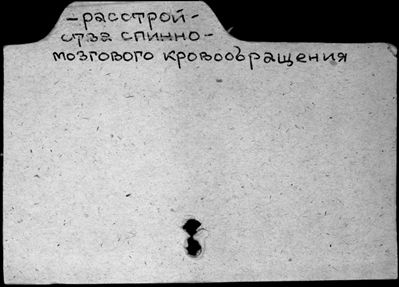 -расстрой-
ства спинно-
мозгового кровообращения